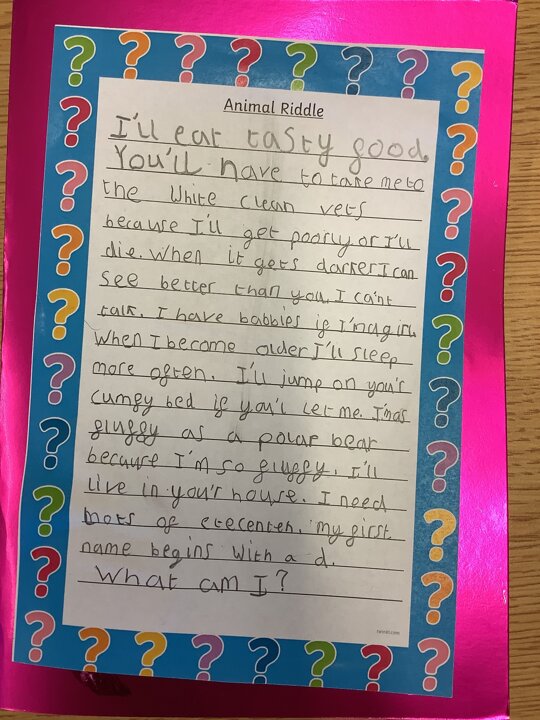 Animal Riddle
I'll eat tasty good.
You'll have to take me to
the white clean vets
because I'll get poorly or I'll
die. When it gets darker I can
see better than you. I ca'nt
talk. I have babbies if I'm a girl.
When I become older I'll sleep
more often. I'll jump on you'r
cumfy bed if you'l let me. I'm as
fluffy as a polar bear
because I'm so fluffy. I'll
live in you'r house. I need
mots of etecenten. my first
name begins with a d.
What am I?
twinkl.com